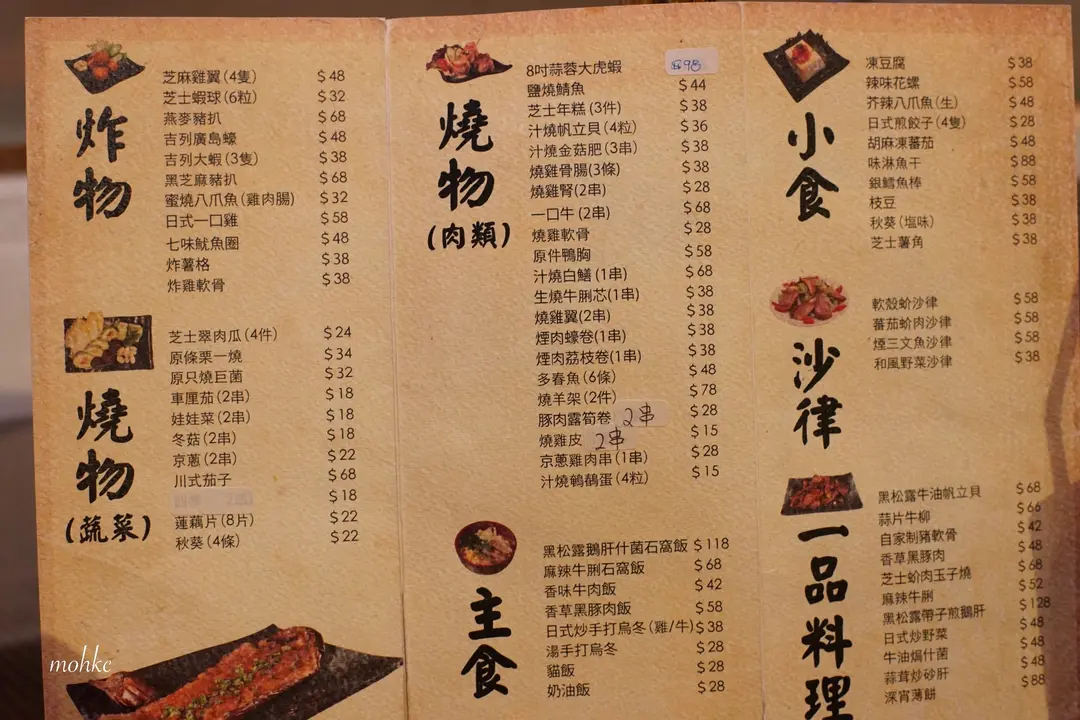 炸物
芝麻雞翼(4隻) $48
芝士蝦球(6粒) $32
燕麥豬扒 $68
吉列廣島蠔 $48
吉列大蝦(3隻) $38
黑芝麻豬扒 $68
蜜燒八爪魚(雞肉腸) $32
日式一口雞 $58
七味魷魚圈 $48
炸薯格 $38
炸雞軟骨 $38
燒物
(蔬菜)
芝士翠肉瓜(4件) $24
原條栗一燒 $34
原只燒巨菌 $32
車厘茄(2串) $18
娃娃菜(2串) $18
冬菇(2串) $18
京蔥(2串) $22
川式茄子 $68
$18
蓮藕片(8片) $22
秋葵(4條) $22
mohkc
燒物
(肉類)
8吋蒜蓉大虎蝦 $98
鹽燒鯖魚 $44
芝士年糕(3件) $38
汁燒帆立貝(4粒) $36
汁燒金菇肥(3串) $38
燒雞骨腸(3條) $38
燒雞腎(2串) $28
一口牛(2串) $68
燒雞軟骨 $28
原件鴨胸 $58
汁燒白鱔(1串) $68
生燒牛脷芯(1串) $38
燒雞翼(2串) $38
煙肉蠔卷(1串) $38
煙肉荔枝卷(1串) $38
多春魚(6條) $48
燒羊架(2件) $78
豚肉露筍卷 2串 $28
燒雞皮 2串 $15
京蔥雞肉串(1串) $28
汁燒鵪鶉蛋(4粒) $15
主食
黑松露鵝肝什菌石窩飯 $118
麻辣牛脷石窩飯 $68
香味牛肉飯 $42
香草黑豚肉飯 $58
日式炒手打烏冬(雞/牛) $38
湯手打烏冬 $28
貓飯 $28
奶油飯 $28
小食
凍豆腐 $38
辣味花螺 $58
芥辣八爪魚(生) $48
日式煎餃子(4隻) $28
胡麻凍蕃茄 $48
味淋魚干 $88
銀鱈魚棒 $58
枝豆 $38
秋葵(塩味) $38
芝士薯角 $38
沙律
軟殼蚧沙律 $58
蕃茄蚧肉沙律 $58
煙三文魚沙律 $58
和風野菜沙律 $38
一品料理
黑松露牛油帆立貝 $68
蒜片牛柳 $66
自家制豬軟骨 $42
香草黑豚肉 $48
芝士蚧肉玉子燒 $68
麻辣牛脷 $52
黑松露帶子煎鵝肝 $128
日式炒野菜 $48
牛油焗什菌 $48
蒜茸炒砂肝 $48
深宵薄餅 $88